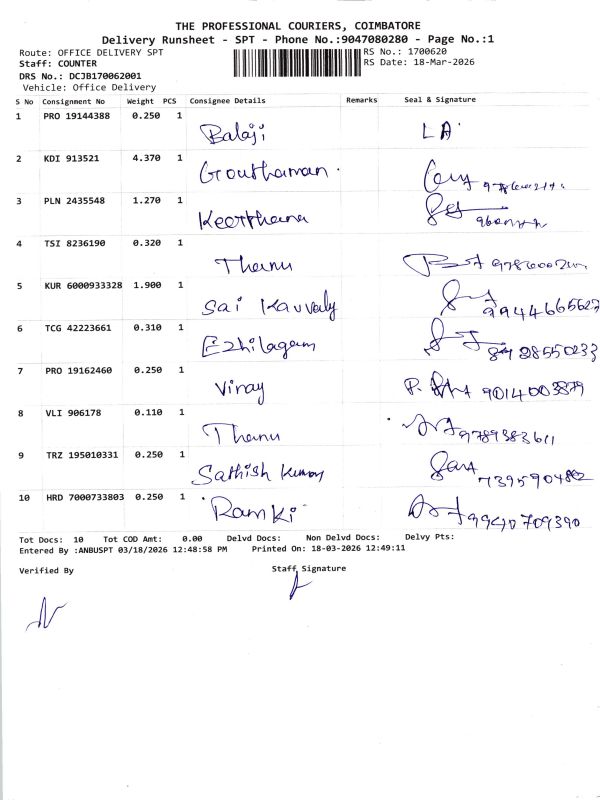 THE PROFESSIONAL COURIERS, COIMBATORE
Delivery Runsheet - SPT - Phone No.:9047080280 - Page No.:1
Route: OFFICE DELIVERY SPT RS No.: 1700620
Staff: COUNTER RS Date: 18-Mar-2026
DRS No.: DCJB170062001
Vehicle: Office Delivery
S No Consignment No Weight PCS Consignee Details Remarks Seal & Signature
1 PRO 19144388 0.250 1 Balaji LA
2 KDI 913521 4.370 1 Gouthaman
3 PLN 2435548 1.270 1 Keerthana
4 TSI 8236190 0.320 1 Thanu
5 KUR 6000933328 1.900 1 Sai 9944665627
6 TCG 42223661 0.310 1 Ezhilagam
7 PRO 19162460 0.250 1 Vinay 9014003879
8 VLI 906178 0.110 1 Thanu 9789383611
9 TRZ 195010331 0.250 1 Sathish Kumar 7395904802
10 HRD 7000733803 0.250 1 Ramki 9940709390
Tot Docs: 10 Tot COD Amt: 0.00 Delvd Docs: Non Delvd Docs: Delvy Pts:
Entered By :ANBUSPT 03/18/2026 12:48:58 PM Printed On: 18-03-2026 12:49:11
Verified By Staff Signature